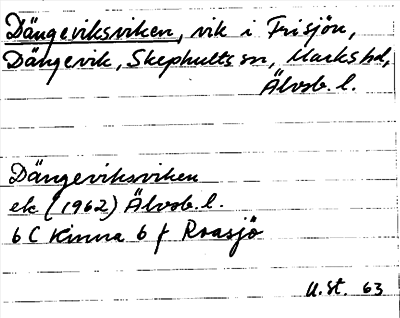 Dängeviksviken, vik i Frisjön,
Dängevik, Skephults sn, Marks hd,
Älvsb. l.
Dängeviksviken
ek (1962) Älvsb. l.
6 C Kinna 6 f Roasjö
U.St. 63